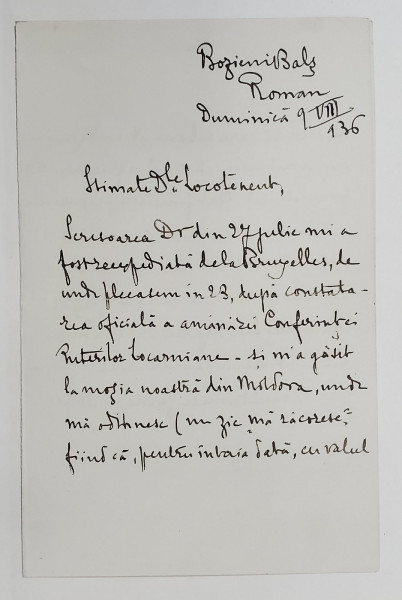 Bozieni Balș
Roman
Duminică 9 VIII
936
Stimate Dle. Locotenent,
Scrisoarea Dv din 27 julie mi a
fost reexpediată dela Bruxelles, de
unde plecasem in 23, după constata-
rea oficială a amânării Conferinței
Puterilor Locarniane - și m'a găsit
la moșia noastră din Moldova, unde
mă odihnesc (nu zic „mă răcoresc",
fiindcă, pentru intaia dată, cu valul